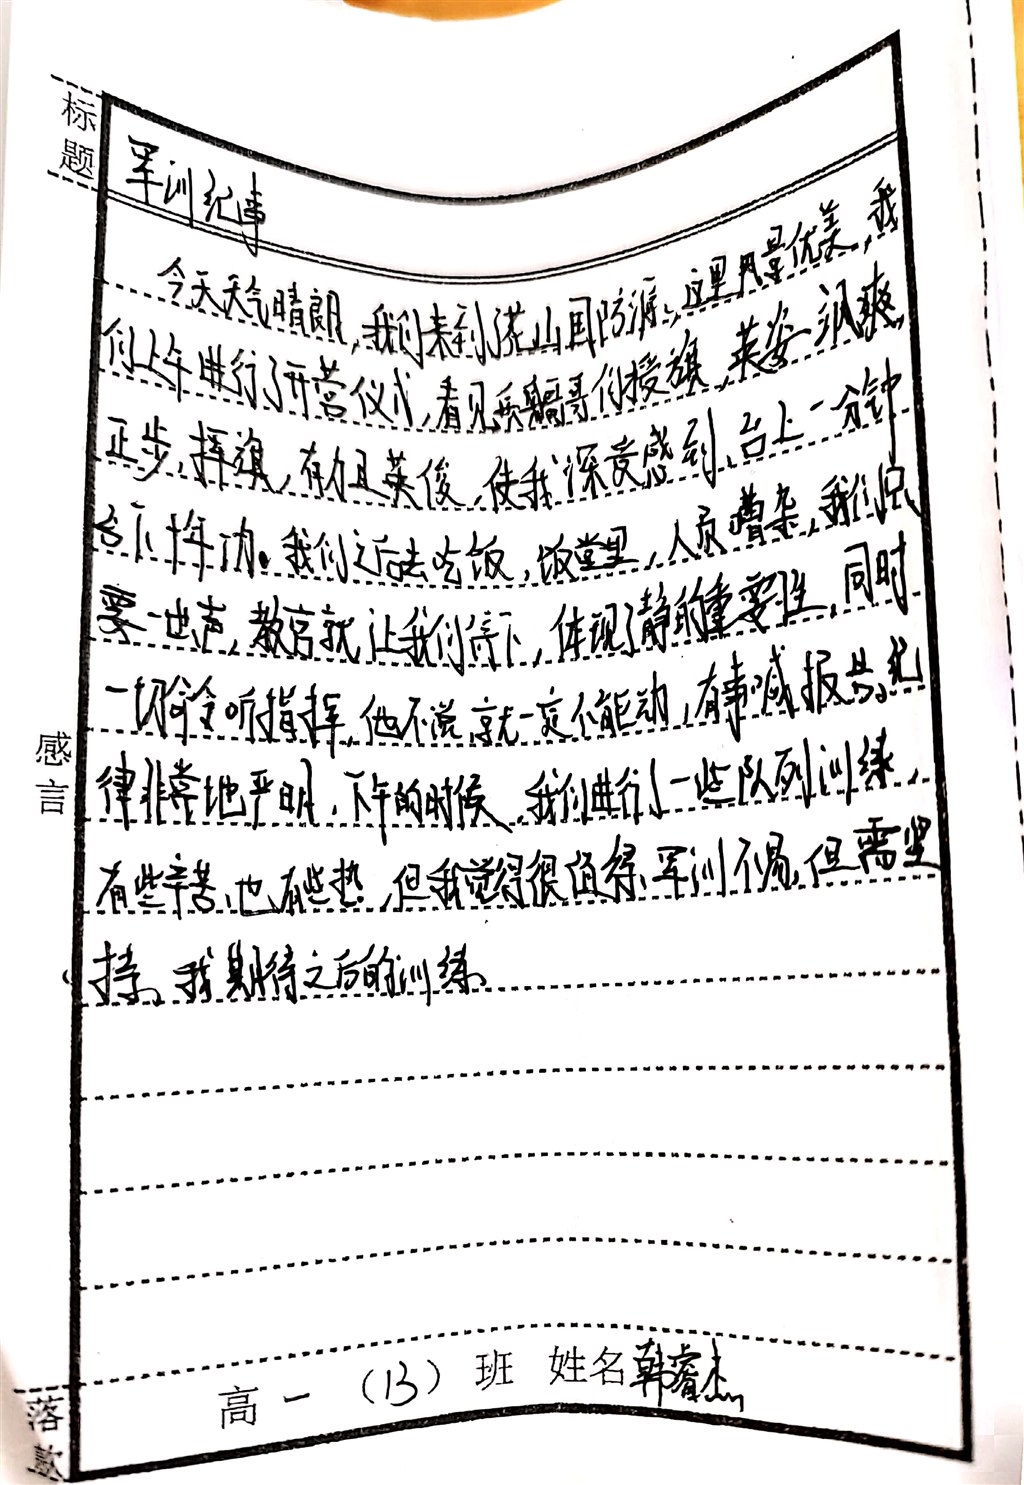 标题
军训纪事
今天天气晴朗,我们来到花山国防源,这里风景优美,我
们上午进行了开营仪式,看见兵哥哥们授旗,英姿飒爽,
正步,挥旗,有力且英俊,使我深受感到,台上一分钟
台下十年功。我们之后去吃饭,饭堂里,人员嘈杂,我们只
要一出声,教官就让我们停下,体现了静的重要性,同时
一切命令听指挥,他不说就一定不能动,有事喊报告。纪
律非常地严明,下午的时候,我们进行了一些队列训练,
有些辛苦,也有些热,但我觉得很值得,军训不易,但需坚
持。我期待之后的训练。
感言
高一(13)班 姓名韩睿杰
落款